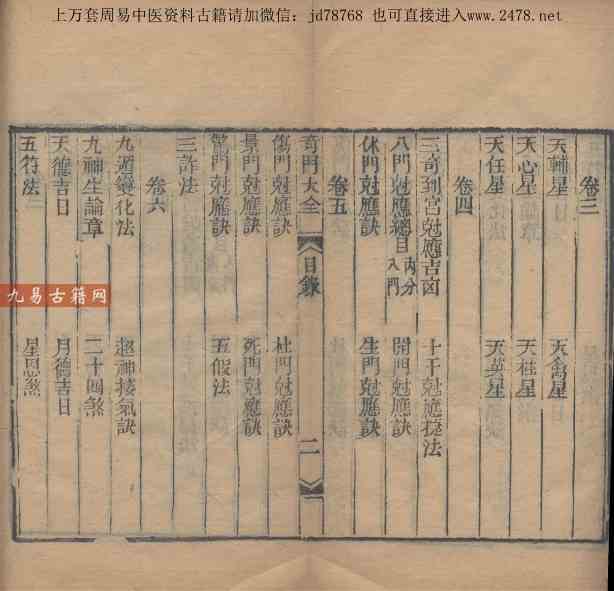 上万套周易中医资料古籍请加微信：jd78768 也可直接进入www.2478.net
卷三
天輔星 天禽星
天心星 天柱星
天任星 天英星
卷四
三奇到宮尅應吉凶 十干尅應捷法
八門尅應總目內分八門 開門尅應訣
休門尅應訣 生門尅應訣
卷五
奇門大全 目錄 二
傷門尅應訣 杜門尅應訣
景門尅應訣 死門尅應訣
驚門尅應訣 五假法
三詐法
卷六
九遁變化法 超神接氣訣
九神生論章 二十四煞
天德吉日 月德吉日
五符法 星恩煞
九易古籍网